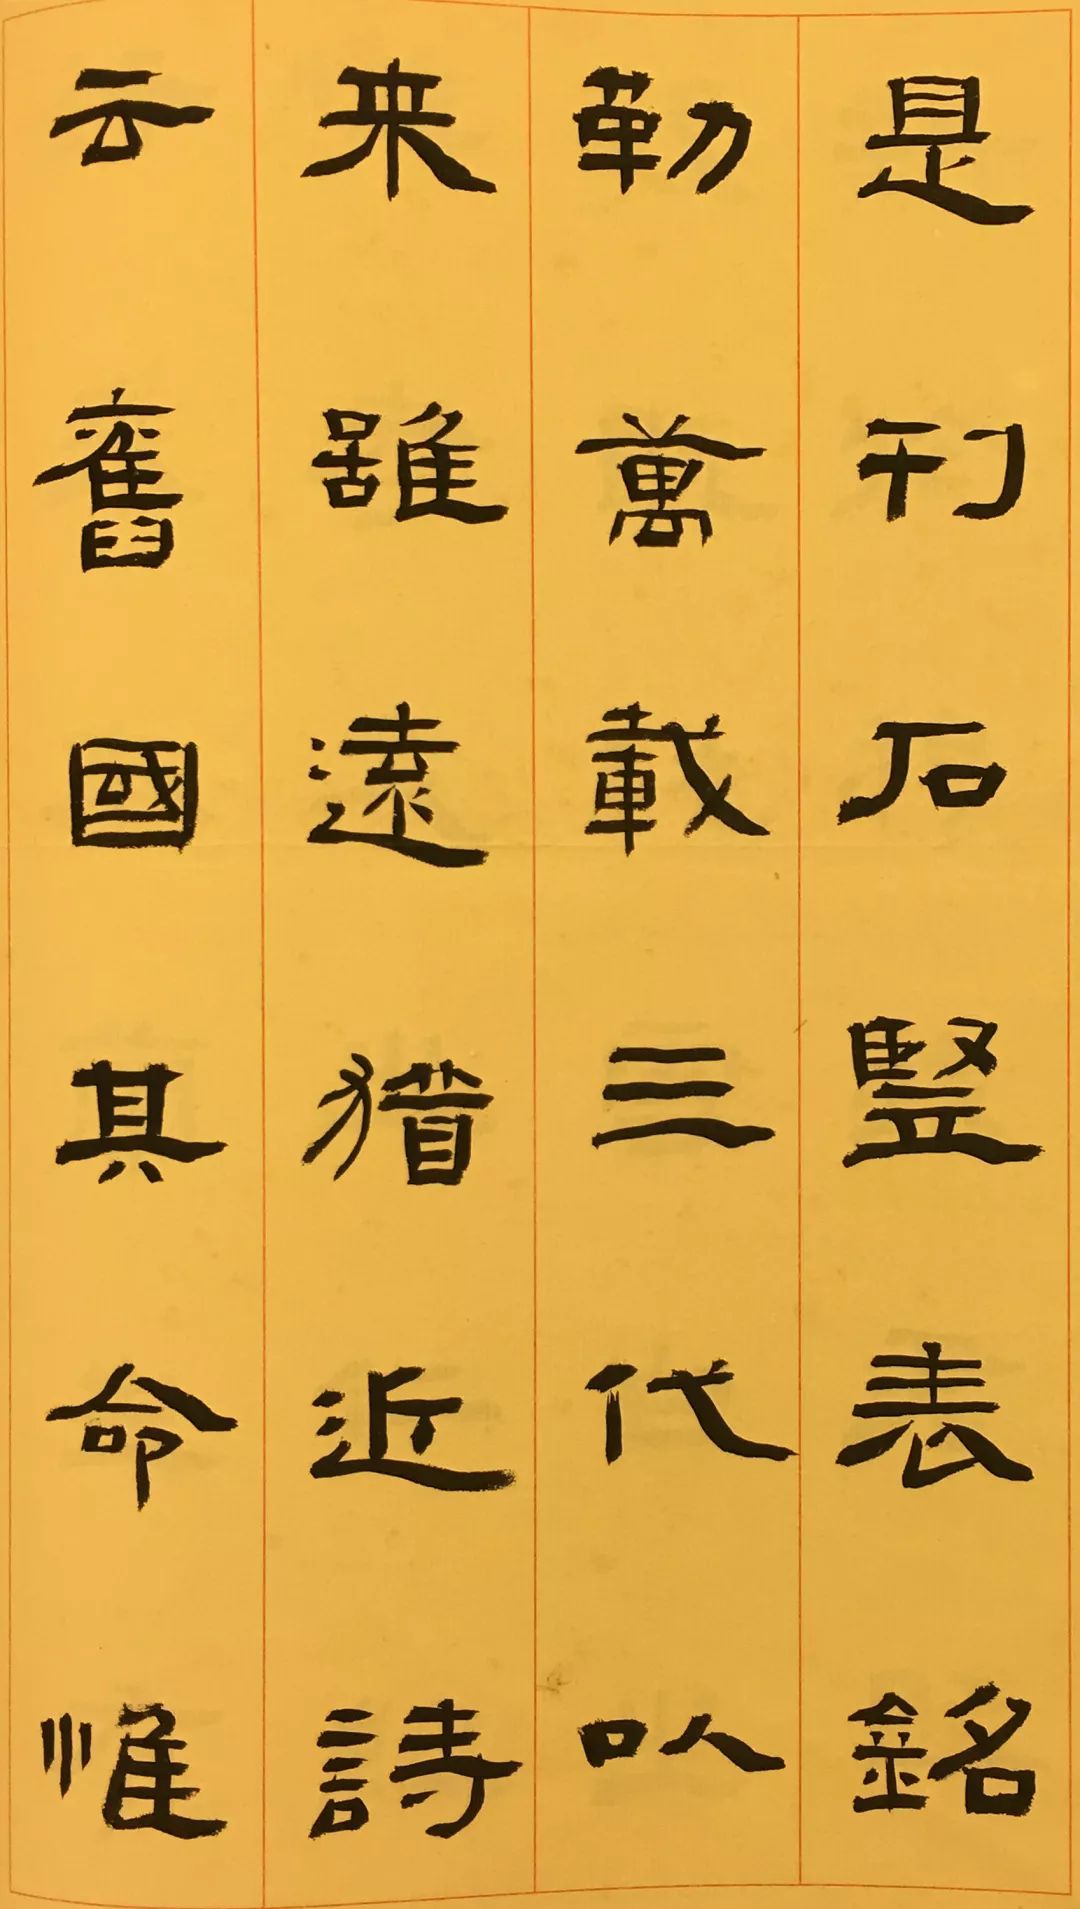 是刊石竪表銘
勒萬載三代以
来雖遠猶近詩
云舊國其命惟